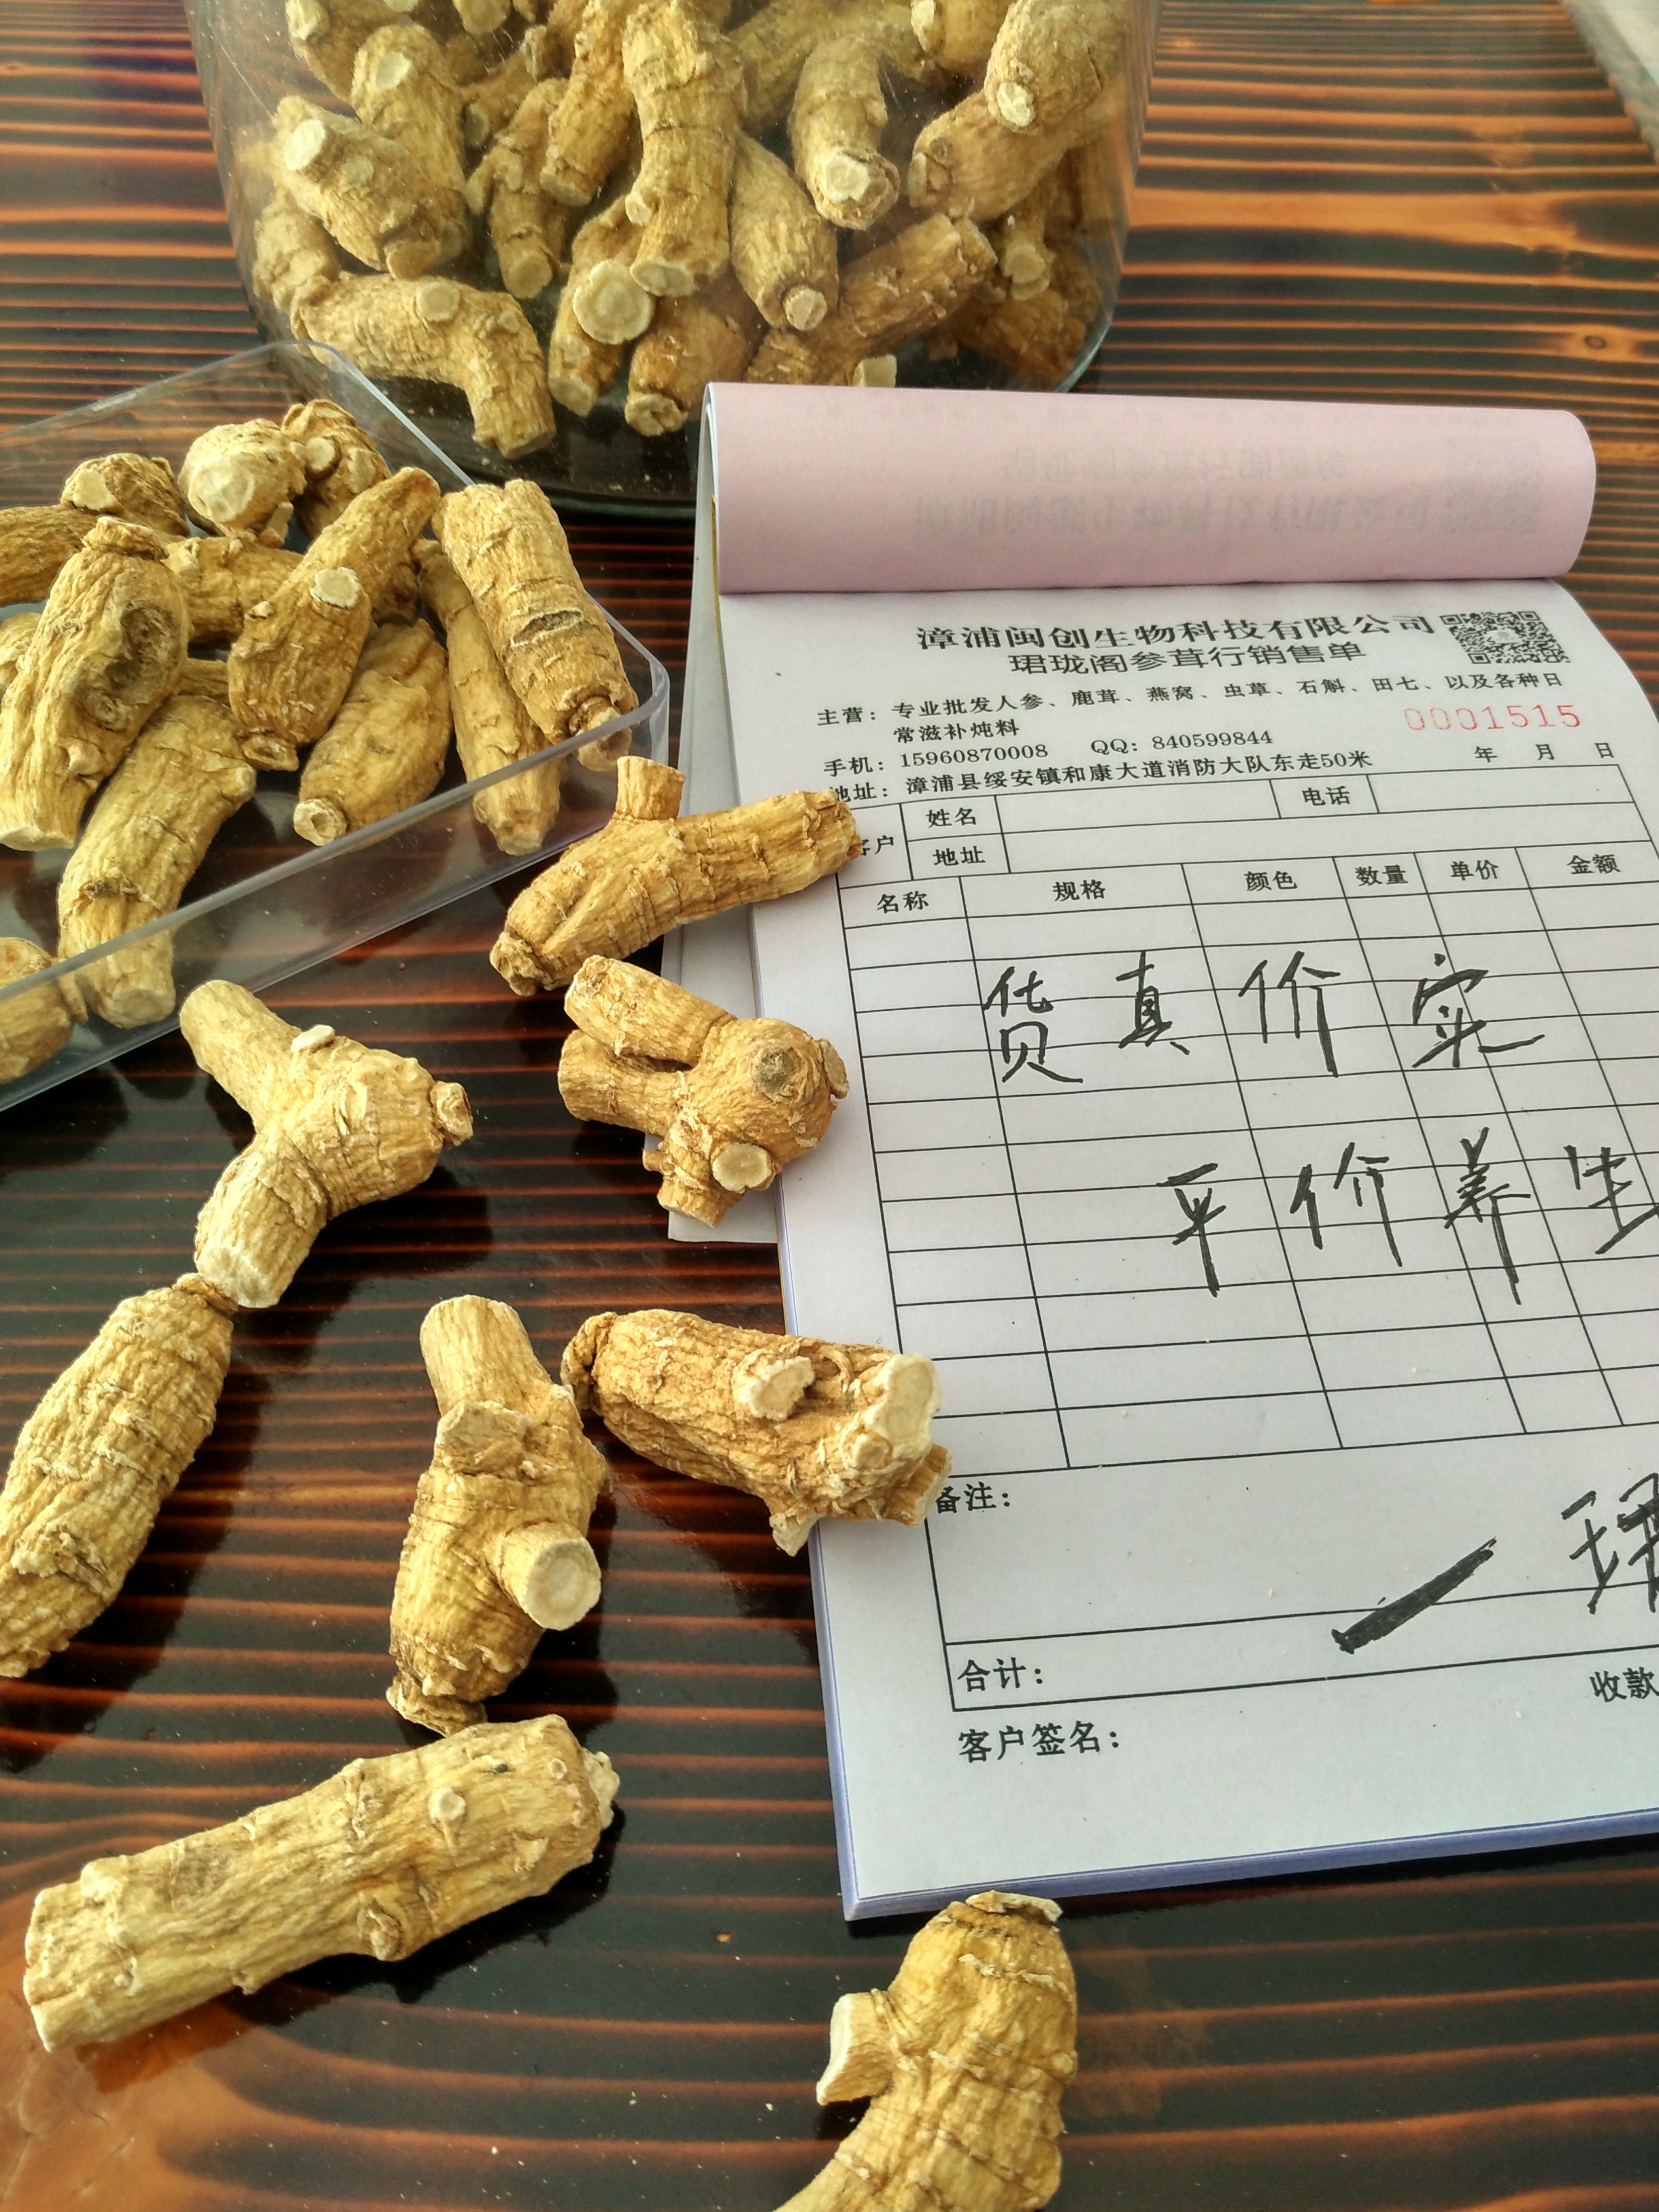 漳浦闽创生物科技有限公司
珺珑阁参茸行销售单
主营：专业批发人参、鹿茸、燕窝、虫草、石斛、田七、以及各种日
常滋补炖料
0001515
手机：15960870008 QQ：840599844
年 月 日
地址：漳浦县绥安镇和康大道消防大队东走50米
客户 姓名 电话
地址
名称 规格 颜色 数量 单价 金额
货真价实
平价养生
备注：
一珺
合计：
收款
客户签名：